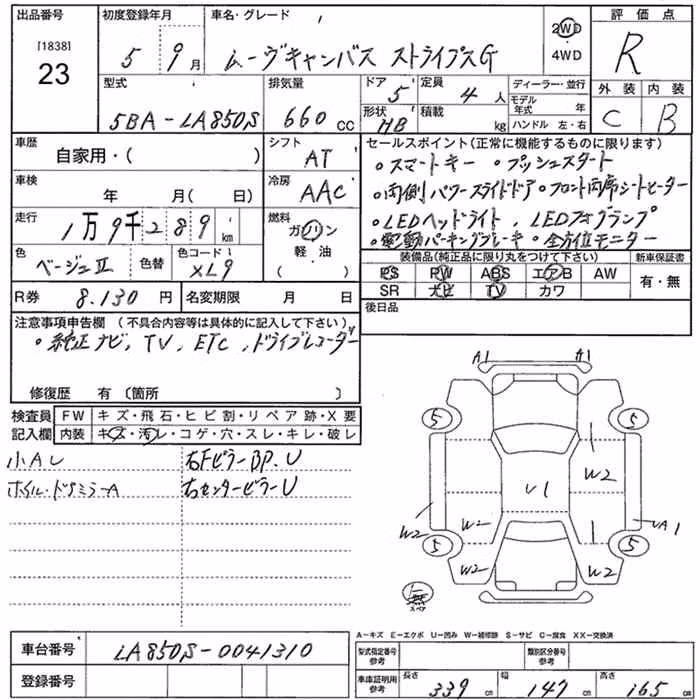 出品番号
[1838]
23
初度登録年月
5 9月
車名・グレード
ムーヴキャンバス ストライプスG
2WD
・
4WD
評価点
R
外装 内装
C B
型式
5BA-LA850S
排気量
660 CC
ドア 5
定員 4 人
形状 HB
積載 kg
ディーラー・並行
モデル年式 年
ハンドル 左・右
車歴
自家用・( )
シフト
AT
車検
年 月( 日)
冷房
AAC
走行
1万9千289 km
燃料
ガソリン
・
軽・油
( )
色
ベージュⅡ
色替
色コードNo.
XL9
R券 8.130 円
名変期限 月 日
セールスポイント(正常に機能するものに限ります)
・スマートキー ・プッシュスタート
・両側パワースライドドア・フロント両席シートヒーター
・LEDヘッドライト、LEDフォグランプ
・電動パーキングブレーキ・全方位モニター
装備品(純正品に限り丸をつけて下さい)
新車保証書
PS PW ABS エアB AW
SR ナビ TV カワ
有・無
後日品
注意事項申告欄 (不具合内容等は具体的に記入して下さい)
・純正ナビ、TV、ETC、ドライブレコーダー
修復歴 有 (箇所 )
検査員記入欄
FW キズ・飛石・ヒビ割・リペア跡・X要
内装 キズ・汚レ・コゲ・穴・スレ・キレ・破レ
小AU
右FピラーBP.U
ホイル・ドアミラーA
右センターピラーU
A1 A1
5 5
W2
U1
W2 W2 UA1
5 5
W2 W2
無
スペア
A-キズ E-エクボ U-凹み W-補修跡 S-サビ C-腐食 XX-交換済
車台番号 LA850S-0041310
登録番号
型式指定番号
参考
類別区分番号
参考
車庫証明用
参考
長さ 339 cm
幅 147 cm
高さ 165 cm